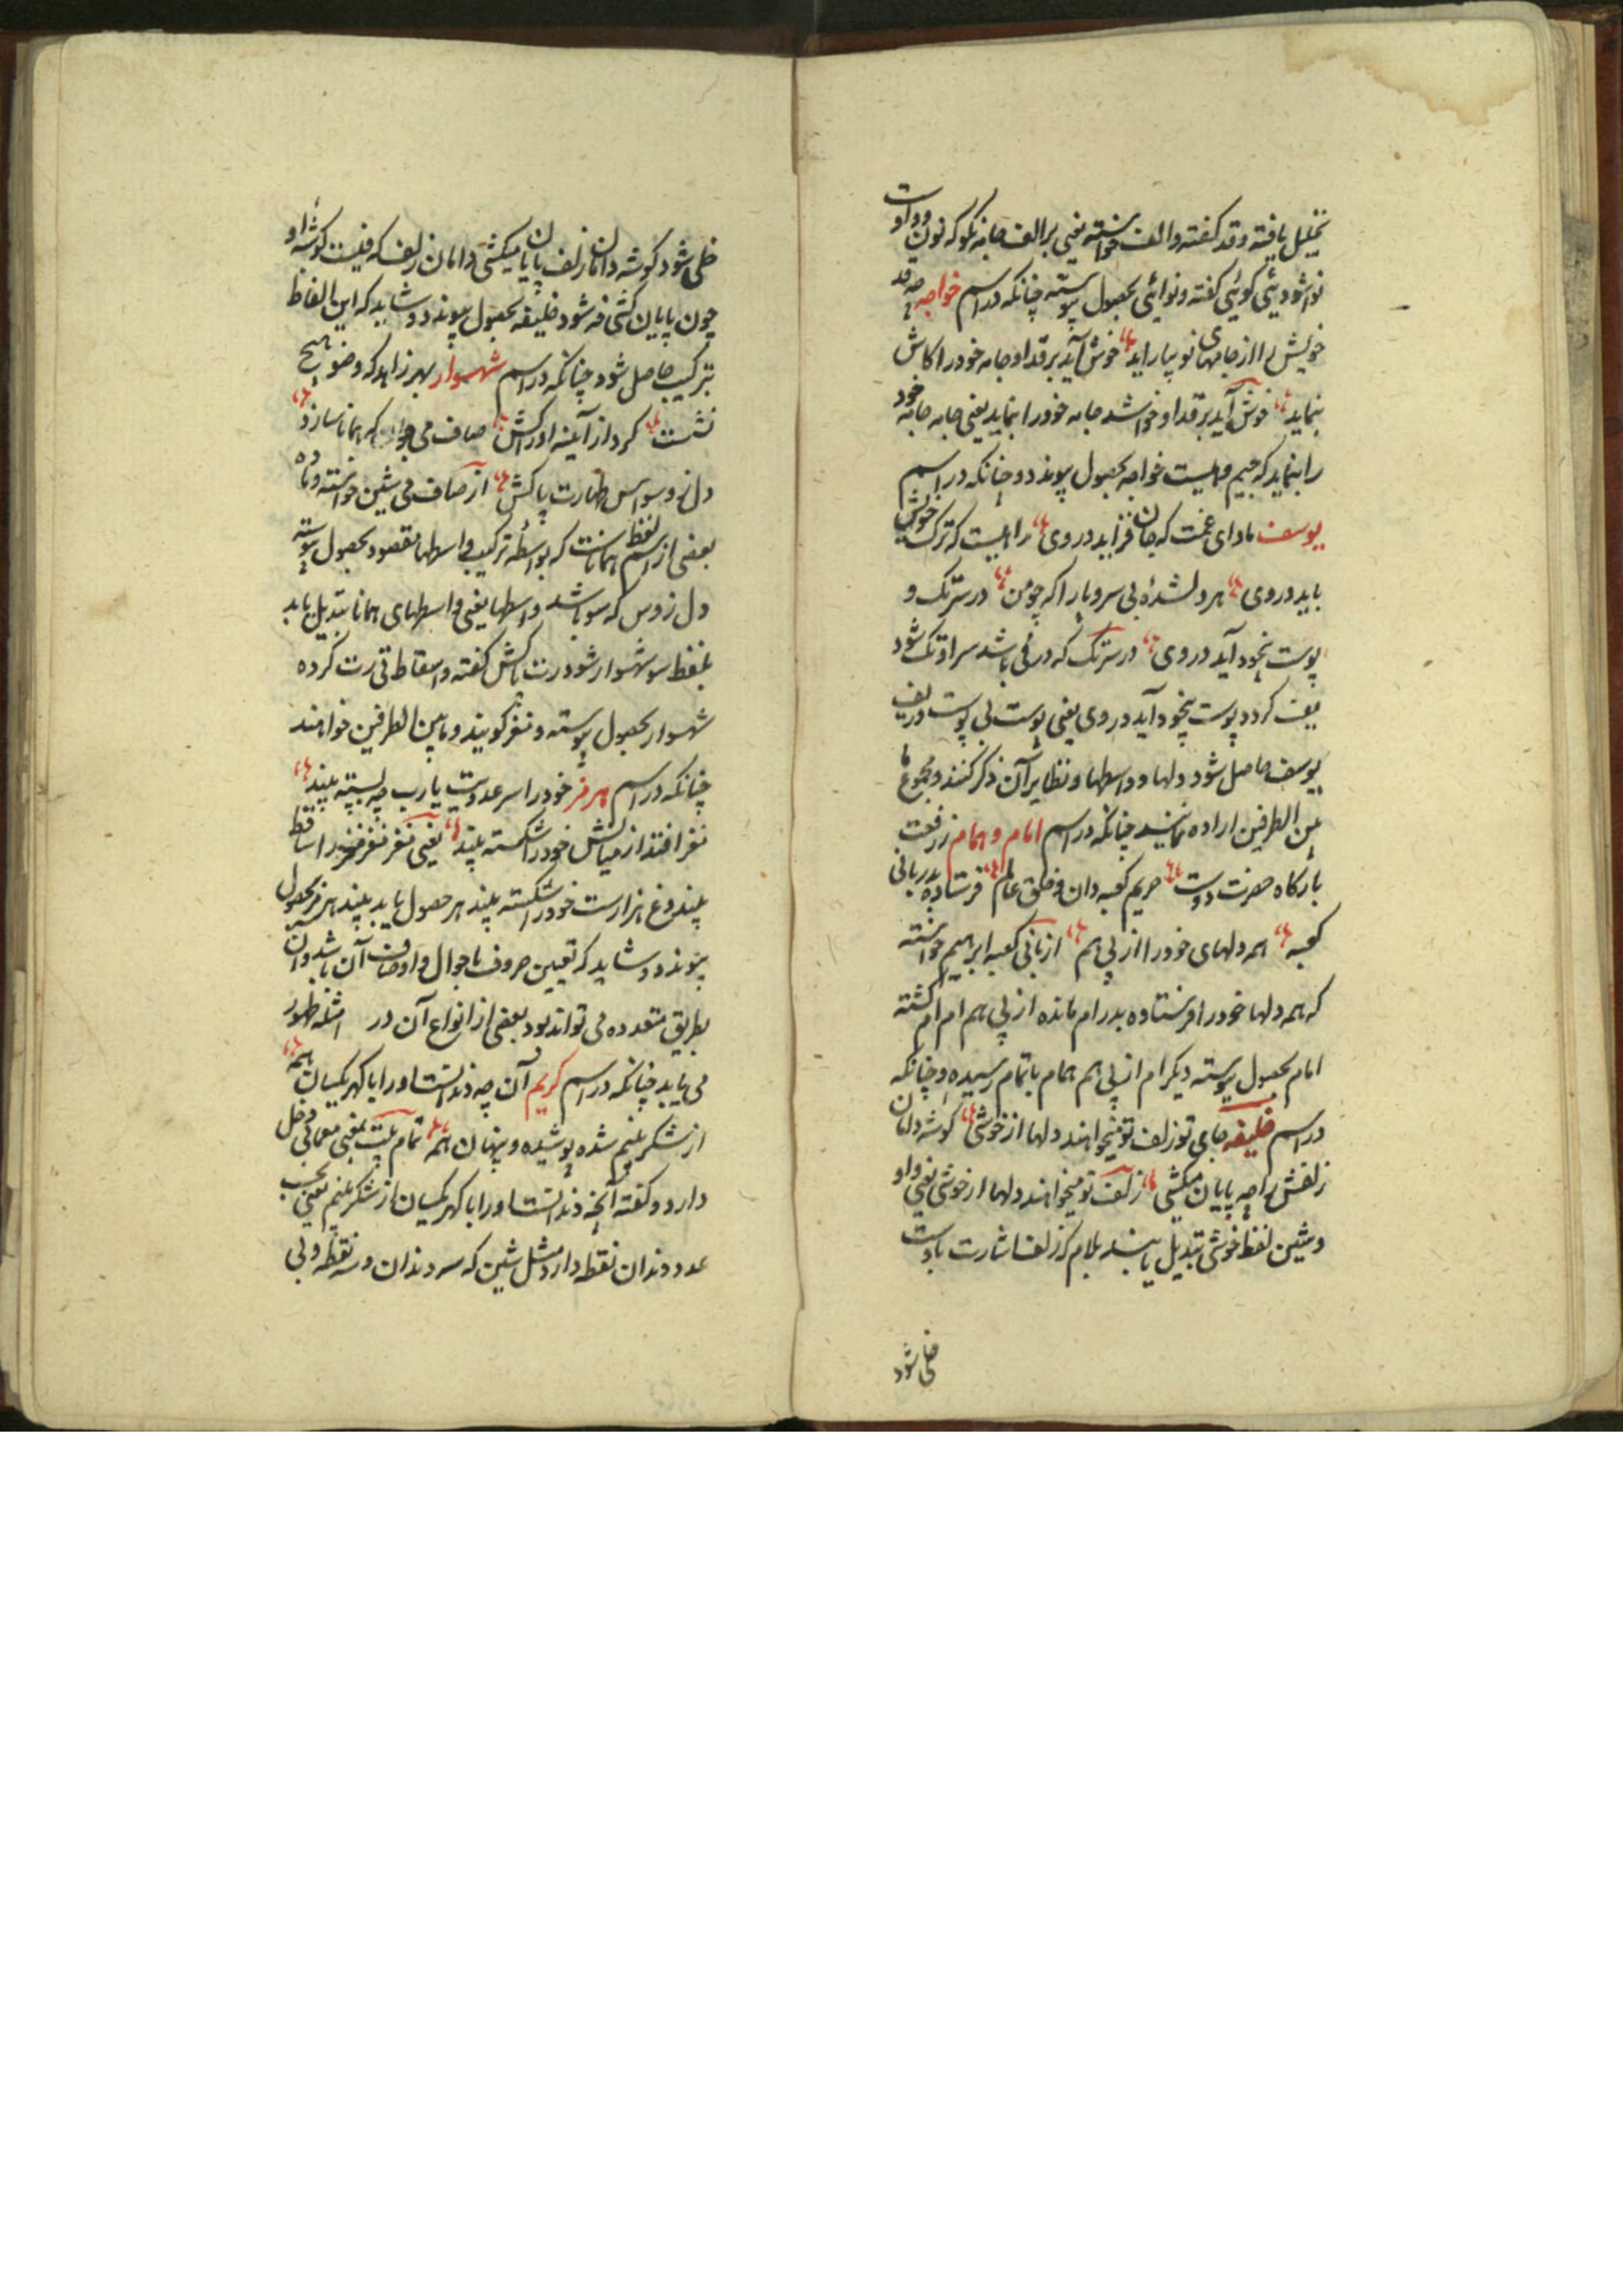 تحلیل یافته و قد گفته و الف خواسته یعنی بر الف جامه نکو که نون و واوست
نوا شود یئی گوئی گفته و نوائی بحصول پیوسته چنانکه در اسم خواجه چه قد
خویش را از جامهای نو بیاراید خوش آید بر قد او جامه خود را کاش
بنماید خوش آید بر قد او خواشد جامه خود را بنماید یعنی جامه جامه خود
را بنماید که جیم و هاست خواجه بحصول پیوندد و چنانکه در اسم
یوسف مادای غمت که جان فزاید در وی راهیست که ترک خویش
باید در وی هر دلشدهٔ بی سر و پا را که چو من در سر تک و
پوست بخود آید در وی در سر تک که در فی باشد سراو تک شود
یف گردد پوست بخود آید در وی یعنی پوست بی پوست در یف
یوسف حاصل شود دلها و واسطها و نظایر آن ذکر کنند و مجموع ما
بین الطرفین اراده نمایند چنانکه در اسم امام و همام ز رفعت
بارگاه حضرت دوست حریم کعبه دان و خلق عالم فرستاده بدربانی
کعبه همه دلهای خود را از پی هم از بانی کعبه ابراهیم خواسته
که همه دلها خود را فرستاده بدر ام مانده از پی هم ام ام گشته
امام بحصول پیوسته دیگر ام از پی هم همام باتمام رسیده و چنانکه
در اسم خلیفه جای تو زلف تو میخواهند دلها از خوشی گوشه دامان
زلفش را چه پایان میکشی زلف تو میخواهند دلها از خوشی یعنی واو
و شین لفظ خوشی تبدیل یابند بلام کز زلف اشارت باوست
خلی شود
خلی شود گوشه دامان زلف پایان میکشی دامان زلف که فیست گوشه او
چون پایان کشی فه شود خلیفه بحصول پیوندد و شاید که این الفاظ
بترکیب حاصل شود چنانکه در اسم شهسوار بهر زاهد که وضو هیچ
نشست گرد از آینه ادراکش صاف می که همانا سازد
دل ز وسواس طهارت پاکش از صاف می شین خواسته و ماده
بعضی از اسم لفظ هماناست که بواسطهٔ ترکیب واسطها مقصود بحصول پیوسته
دل ز وس که سو باشد واسطها یعنی واسطهای همانا تبدیل یابد
بلفظ سو شهسوار شود رت پاکش گفته و اسقاط تی رت کرده
شهسوار بحصول پیوسته و نغز گویند و مابین الطرفین خواهند
چنانکه در اسم هرمز خود را سر عدوت یارب چه بسته بیند
نغز افتد از میانش خود را شکسته بیند یعنی نغز نغز را ساقط
بیند و غ هزارست خود را شکسته بیند هر حصول یابد بیند هرمز بحصول
پیوندد و شاید که تعیین حروف باحوال و اوصاف آن باشد و آن
بطریق متعدده می تواند بود بعضی از انواع آن در امثله ظهور
می یابد چنانکه در اسم کریم آن چه دندانست او را با گهر یکسان همه
از شکر نیم شده پوشیده و پنهان همه تمام بیت بمعنی معمائی دخل
دارد و گفته آنچه دندانست او را با گهر یکسان از شکر نیم یعنی بحسب
عدد دندان نقطه دارد مثل شین که سه دندان و سه نقطه و بی